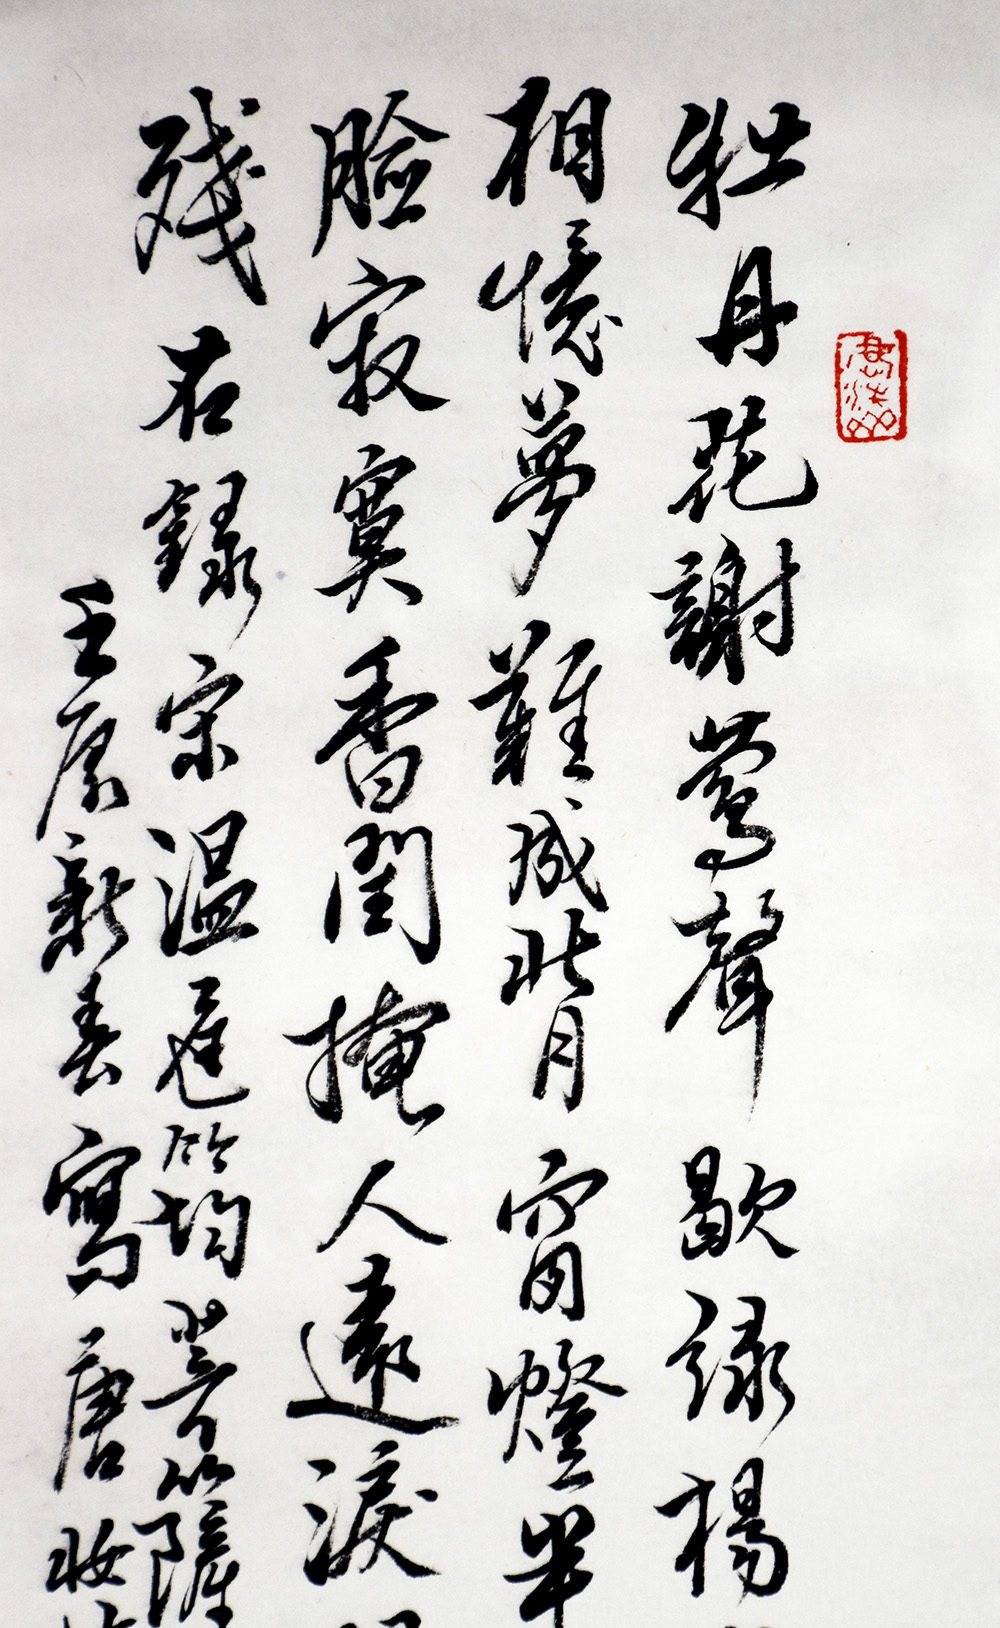 牡丹花謝鶯聲歇綠楊
相憶夢難成背月窗燈半
臉寂寞香閨掩人遠淚
殘右錄宋溫庭筠菩薩
王康新春寫唐